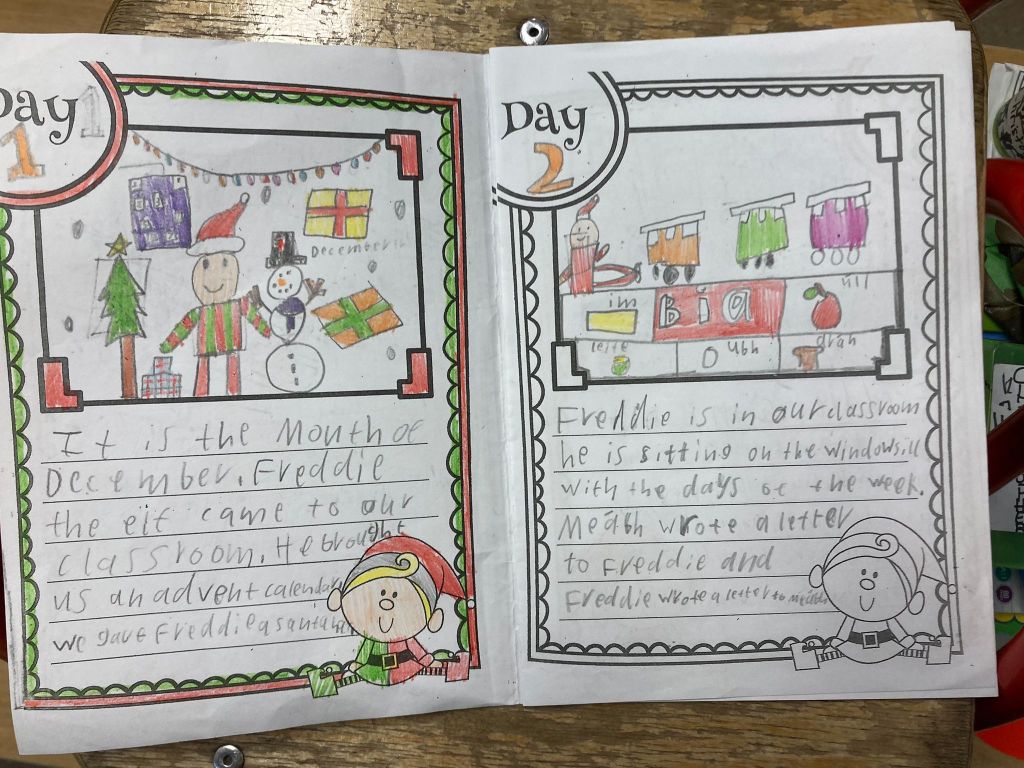 Day 1
1
December
It is the Month of
December. Freddie
the elf came to our
classroom. He brought
us an advent calendar
we gave Freddie a santa
Day
2
im
BIA
úll
leite
ubh
arán
Freddie is in our classroom
he is sitting on the windowsill
with the days of the week.
Meábh wrote a letter
to Freddie and
Freddie wrote a letter to meabh